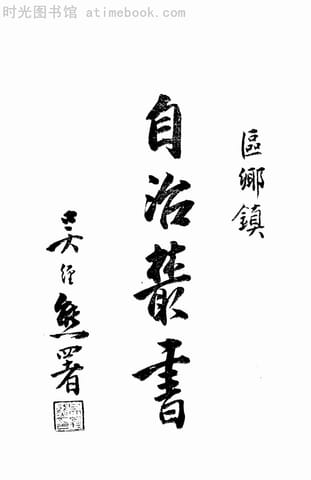 时光图书馆 atimebook.com
區鄉鎮
自治叢書
吴經熊署